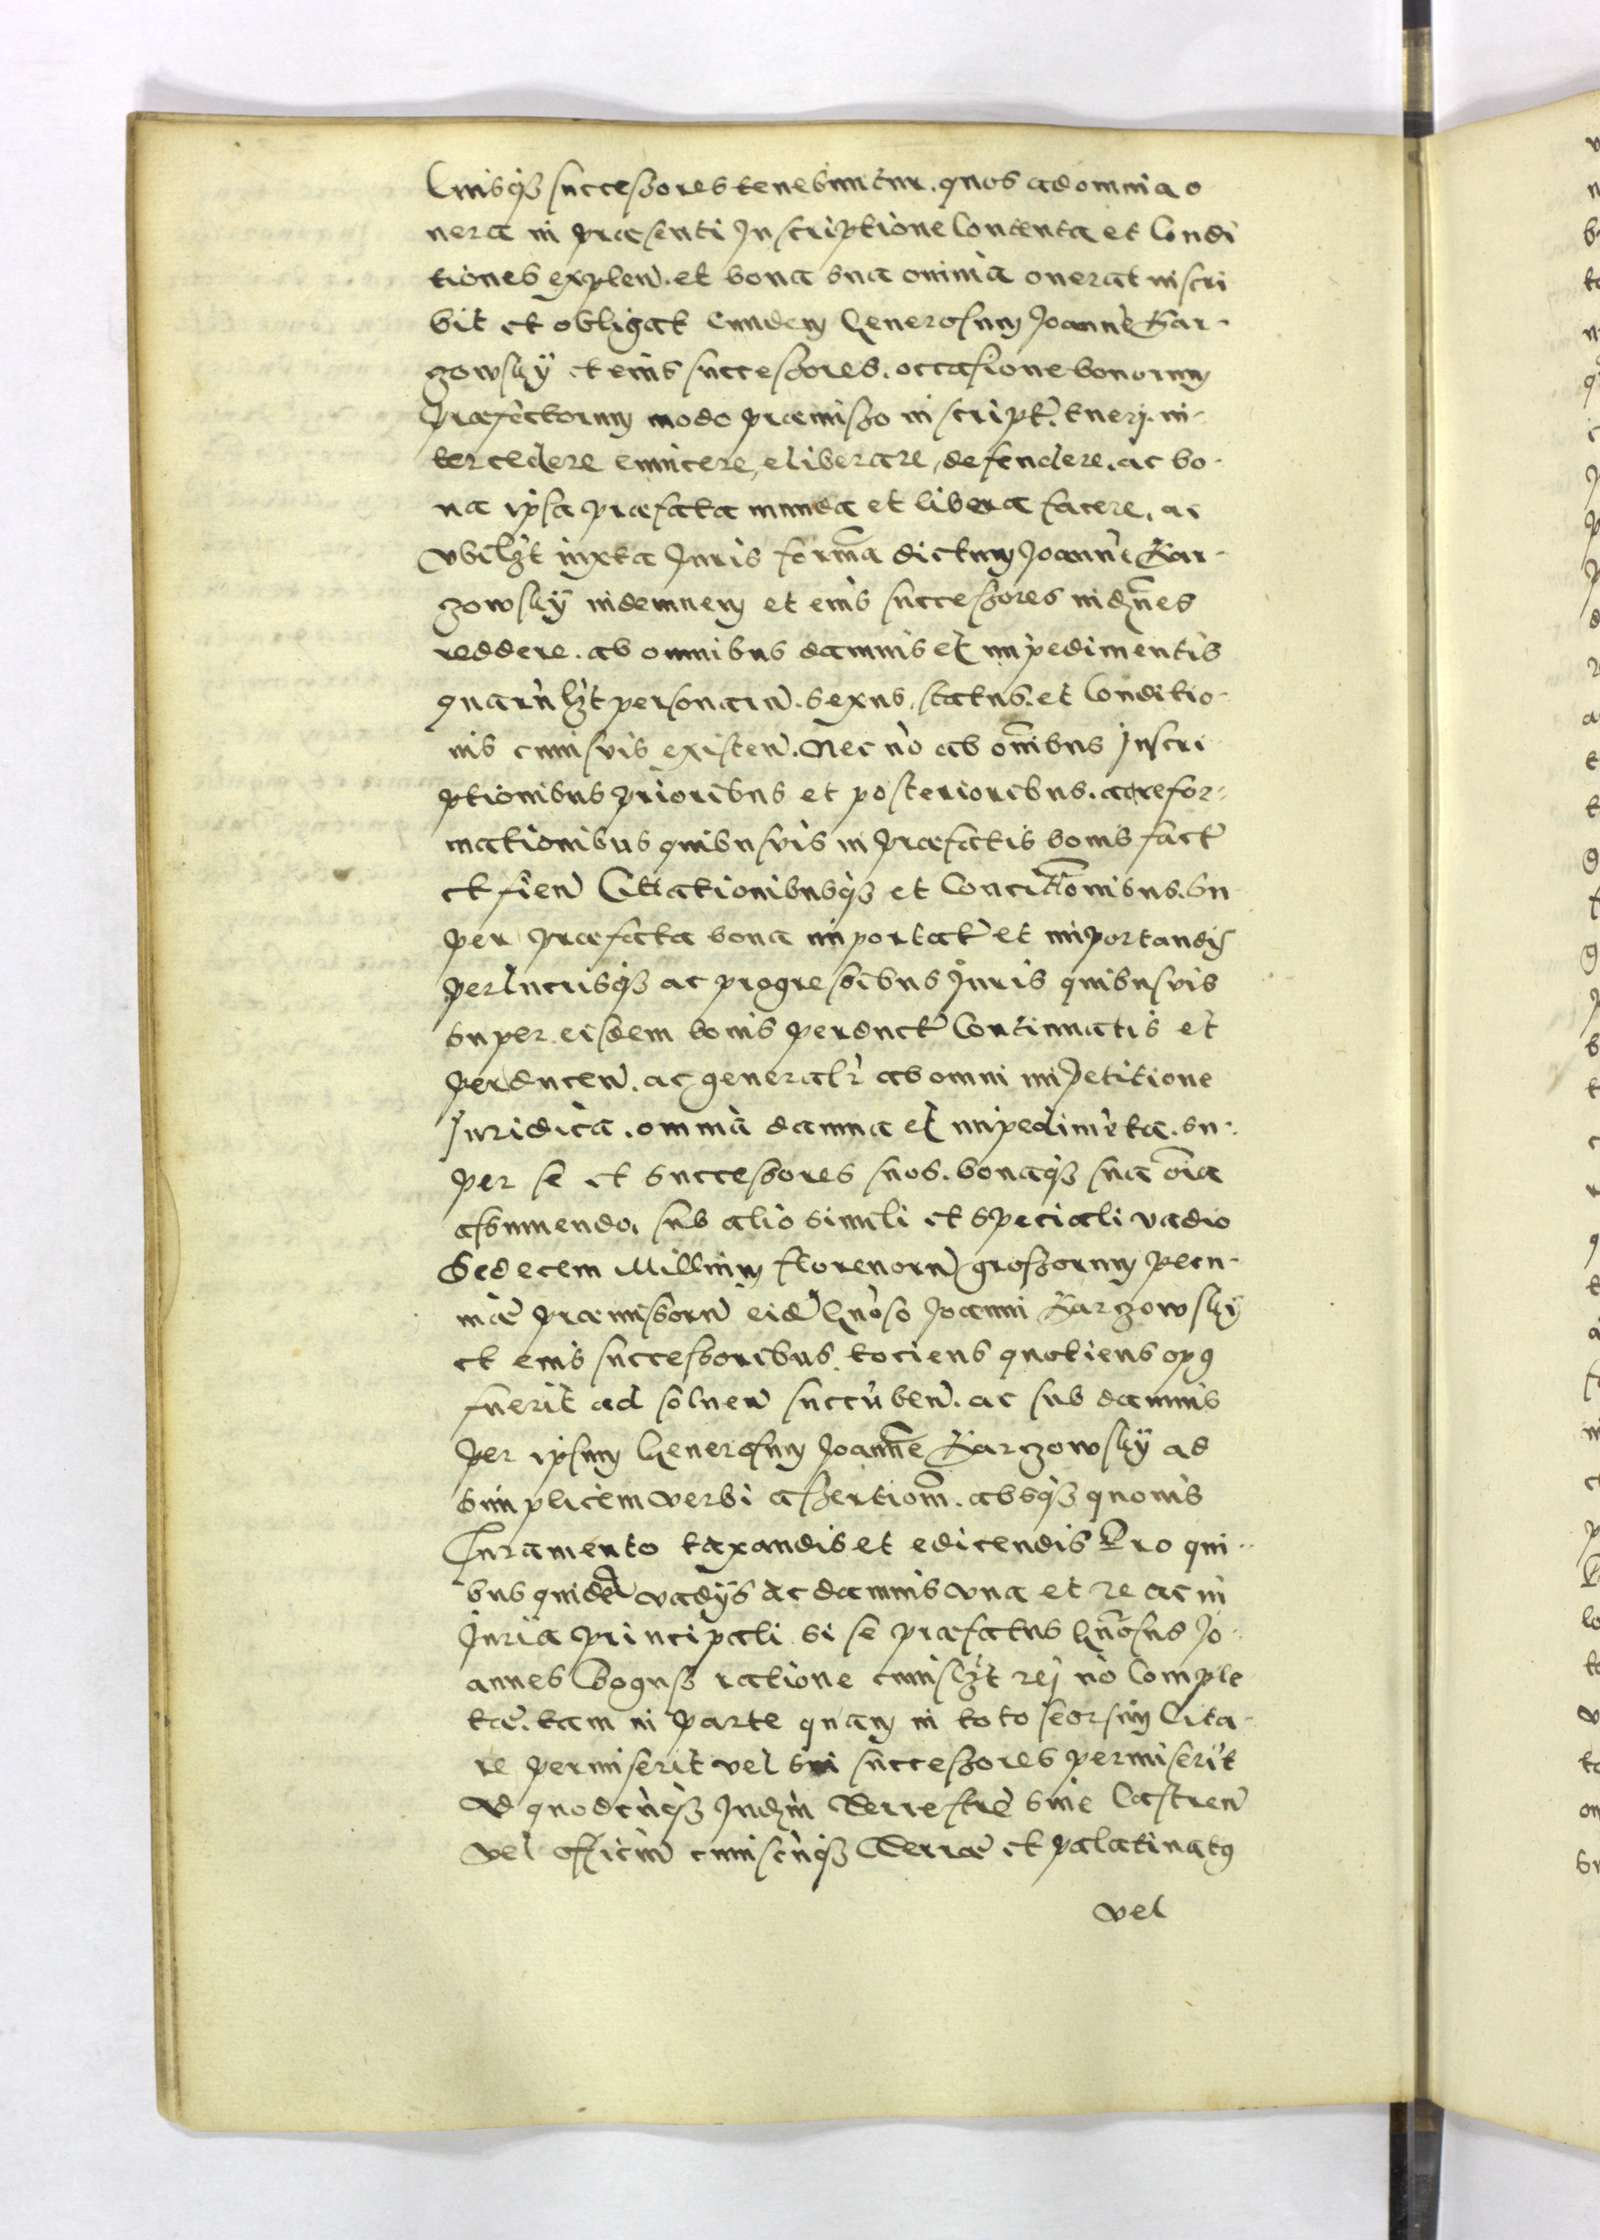 Cuiusq3 successores tenebuntur. quos ad omnia o
nera in praesenti Inscriptione Contenta et Condi
tiones explen̄. et bona sua omnia onerat inscri
bit et obligat Eundem Generosum Joannē Kar-
zowskÿ et eius successores. occasione bonorum
praefectorum modo praemisso inscript̄. tueri. in-
tercedere euincere, eliberare, defendere. ac bo-
na ipsa praefata munda et libera facere, ac
vbilȝt iuxta Juris formā dictum Joannē Kar-
zowskÿ indemnem et eius successores indēnes
reddere. ab omnibus damnis et impedimentis
quarūlȝt personarū. sexus, status. et Conditio-
nis cuiusvis existen̄. Nec nō ab om̄ibus Inscri
ptionibus prioribus et posterioribus. ac refor-
mationibus quibusvis in praefatis bonis fact̄
et fien̄ Cittationibusq3 et Concitt̄onibus. su
per praefata bona importat̄ et importandis
perlucrisq3 ac progressibus Juris quibusvis
super eisdem bonis perduct̄ Continuatis et
perducen̄. ac generalr̄ ab omni impetitione
Juridica. omnia damna et impedimēta. su-
per se et successores suos. bonaq3 sua ōia
assumendo, sub alio simili et speciali vadio
Sedecem Millium florenorū grossorum pecu-
niae praemissorū eidē Gnōso Joanni KarzowskÿÏ
et eius successoribus. tociens quotiens opꝯ
fuerit ad soluen̄ succūben̄. ac sub damnis
per ipsum Generosum Joannē Karzowskÿ ad
simplicem verbi assertionē. absq3 quouis
Juramento taxandis et edicendis Pro qui-
bus quidē vadÿs ac damnis vna et re ac in
Juria principali si se praefatus Gnōsus Jo-
annes Bogusz ratione cuiuslȝt rej nō Comple
tae. tam in parte quam in toto seorsim Cita-
re permiserit vel sui successores permiserīt
Ad quodcūq3 Judm̄ Terrestre siue Castren̄
Vel officiū cuiuscūq3 Terrae et palatinatꝯ
vel